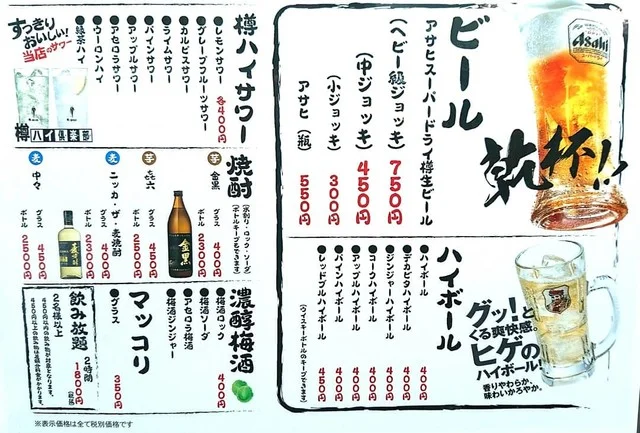 ビール
アサヒスーパードライ樽生ビール
(ヘビー級ジョッキ) 750円
(中ジョッキ) 450円
(小ジョッキ) 300円
アサヒ(瓶) 550円
Asahi
乾杯!!
ハイボール
●ハイボール 400円
●デカビタハイボール 400円
●ジンジャーハイボール 400円
●コークハイボール 400円
●アップルハイボール 400円
●パインハイボール 400円
●レッドブルハイボール 450円
(ウイスキーボトルのキープできます)
グッ!と
くる爽快感。
ヒゲの
ハイボール!
香りやわらか、
味わいかろやか。
樽ハイサワー
各400円
●レモンサワー
●グレープフルーツサワー
●カルピスサワー
●ライムサワー
●パインサワー
●アップルサワー
●アセロラサワー
●ウーロンハイ
●緑茶ハイ
すっきり
おいしい!
当店のサワー
樽ハイ倶楽部
焼酎
(水割り・ロック・ソーダ)
(ボトルキープもできます)
芋 金黒
グラス 400円
ボトル 2300円
金黒
芋 㐂六
グラス 450円
ボトル 2500円
麦 ニッカ・ザ・麦焼酎
グラス 400円
ボトル 2300円
麦 中々
グラス 450円
ボトル 2500円
濃醇梅酒
400円
●梅酒ロック
●梅酒ソーダ
●アセロラ梅酒
●梅酒ジンジャー
マッコリ
●グラス 350円
飲み放題
2時間
1800円
(税抜)
2名様以上
450円以内の飲み物が対象となります。
※表示価格は全て税別価格です